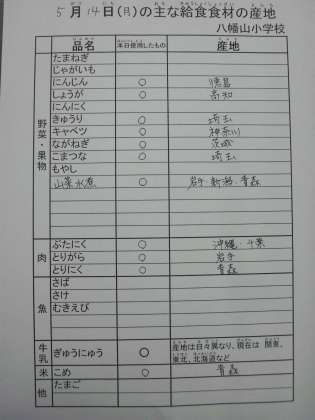 5月14日(月)の主な給食食材の産地
八幡山小学校
品名 本日使用したもの 産地
野菜・果物
たまねぎ
じゃがいも
にんじん ○ 徳島
しょうが ○ 高知
にんにく
きゅうり ○ 埼玉
キャベツ ○ 神奈川
ながねぎ ○ 茨城
こまつな ○ 埼玉
もやし
山菜水煮 ○ 岩手・新潟・青森
肉
ぶたにく ○ 沖縄・千葉
とりがら ○ 岩手
とりにく ○ 青森
魚
さば
さけ
むきえび
牛乳 ぎゅうにゅう ○ 産地は日々異なり、現在は 関東、
東北、北海道など
米 こめ ○ 青森
他 たまご